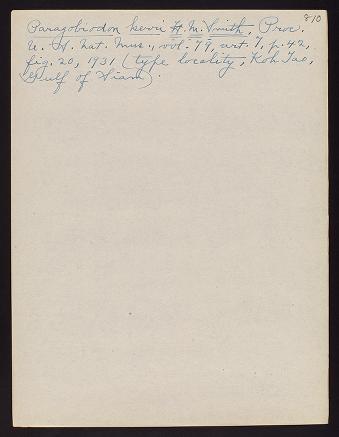 810
Paragobiodon kerri H. M. Smith, Proc.
U. S. Nat. Mus., vol. 79, art. 7, p. 42,
fig. 20, 1931 (type locality, Koh Tao,
Gulf of Siam).